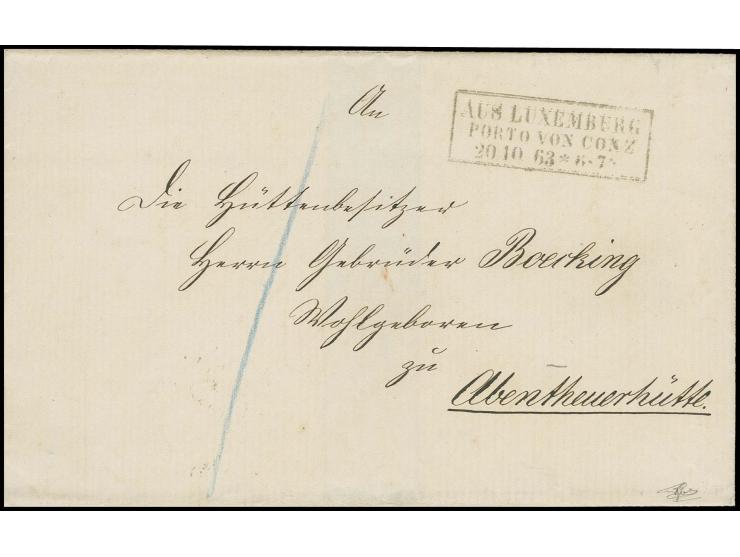 An
AUS LUXEMBURG
PORTO VON CONZ
20 10 63 * 6-7
Die Hüttenbesitzer
Herrn Gebrüder Boecking
Wohlgeboren
zu
Abentheuerhütte.